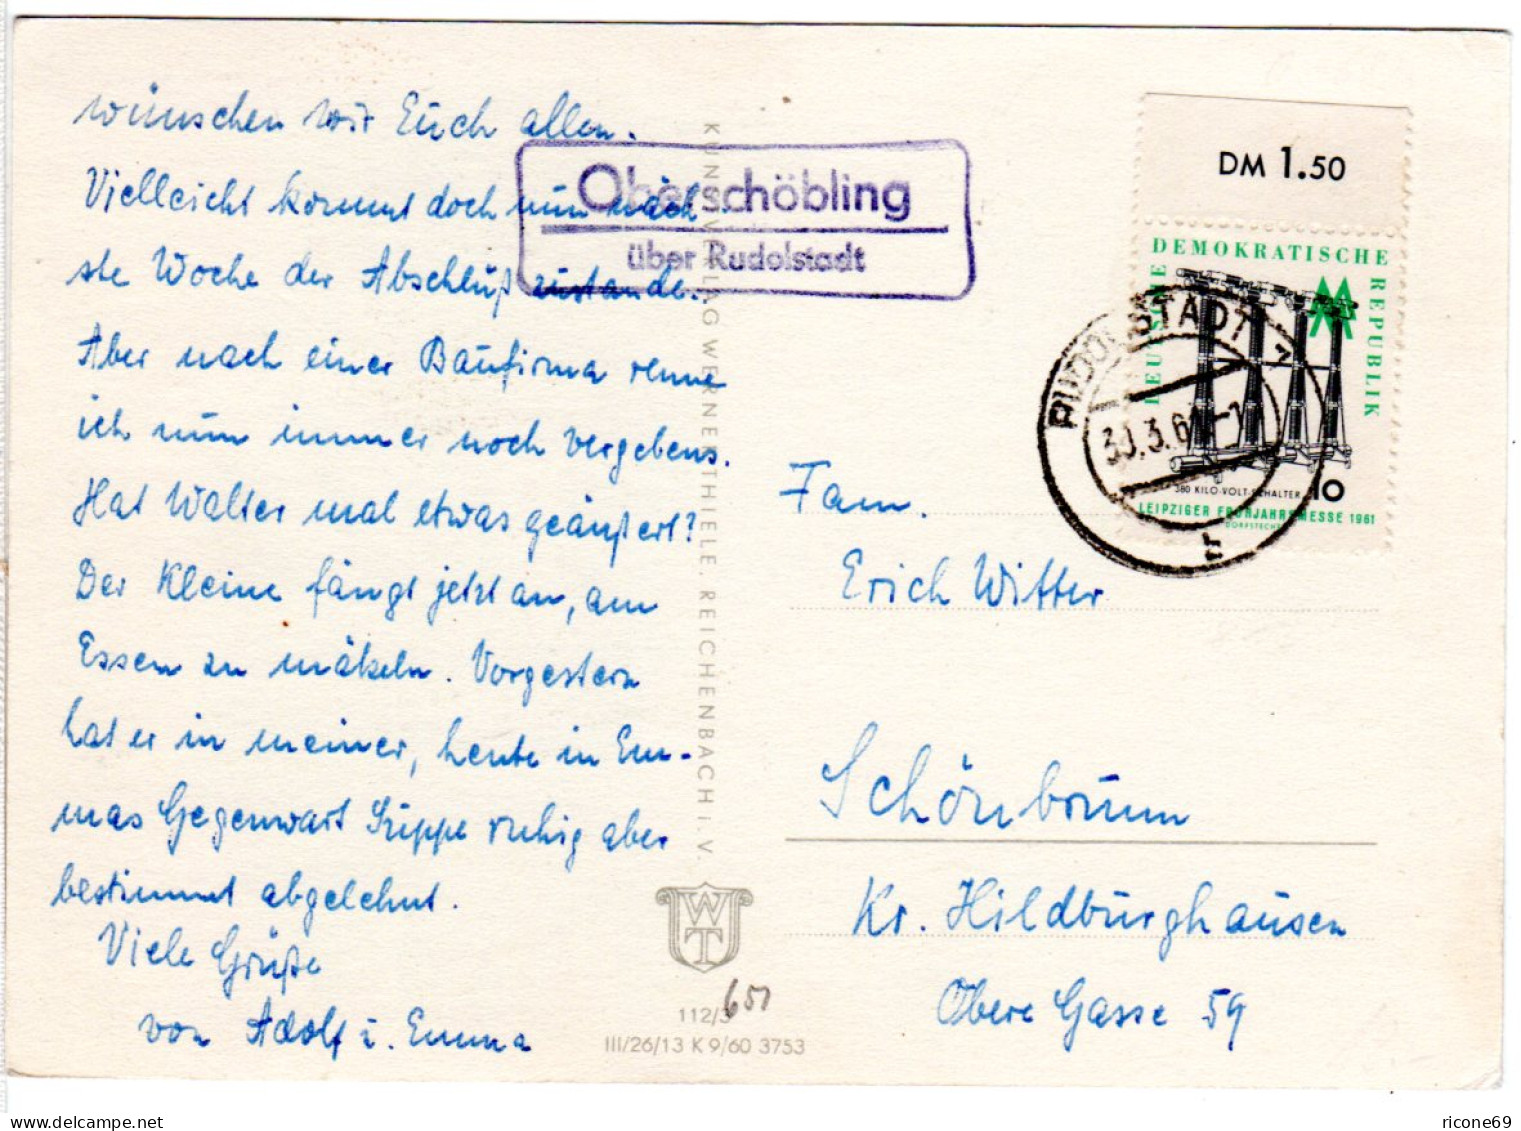 wünschen wir Euch allen.
Vielleicht kommt doch nun näch-
ste Woche der Abschluß zustande.
Aber nach einer Baufirma renne
ich nun immer noch vergebens.
Hat Walter mal etwas geäußert?
Der Kleine fängt jetzt an, am
Essen zu mäkeln. Vorgestern
hat er in meiner, heute in Em-
mas Gegenwart Suppe ruhig aber
bestimmt abgelehnt.
Viele Grüße
von Adolf u. Emma
Oberschöbling
über Rudolstadt
KUNSTVERLAG WERNER THIELE, REICHENBACH i. V.
WT
112/3
651
III/26/13 K 9/60 3753
DM 1.50
DEUTSCHE DEMOKRATISCHE REPUBLIK
MM
380 KILO-VOLT-SCHALTER
10
LEIPZIGER FRÜHJAHRSMESSE 1961
DORFSTECHER
RUDOLSTADT 1
30.3.61
Fam.
Erich Witter
Schönbrunn
Kr. Hildburghausen
Obere Gasse 59
delcampe.net
ricone69